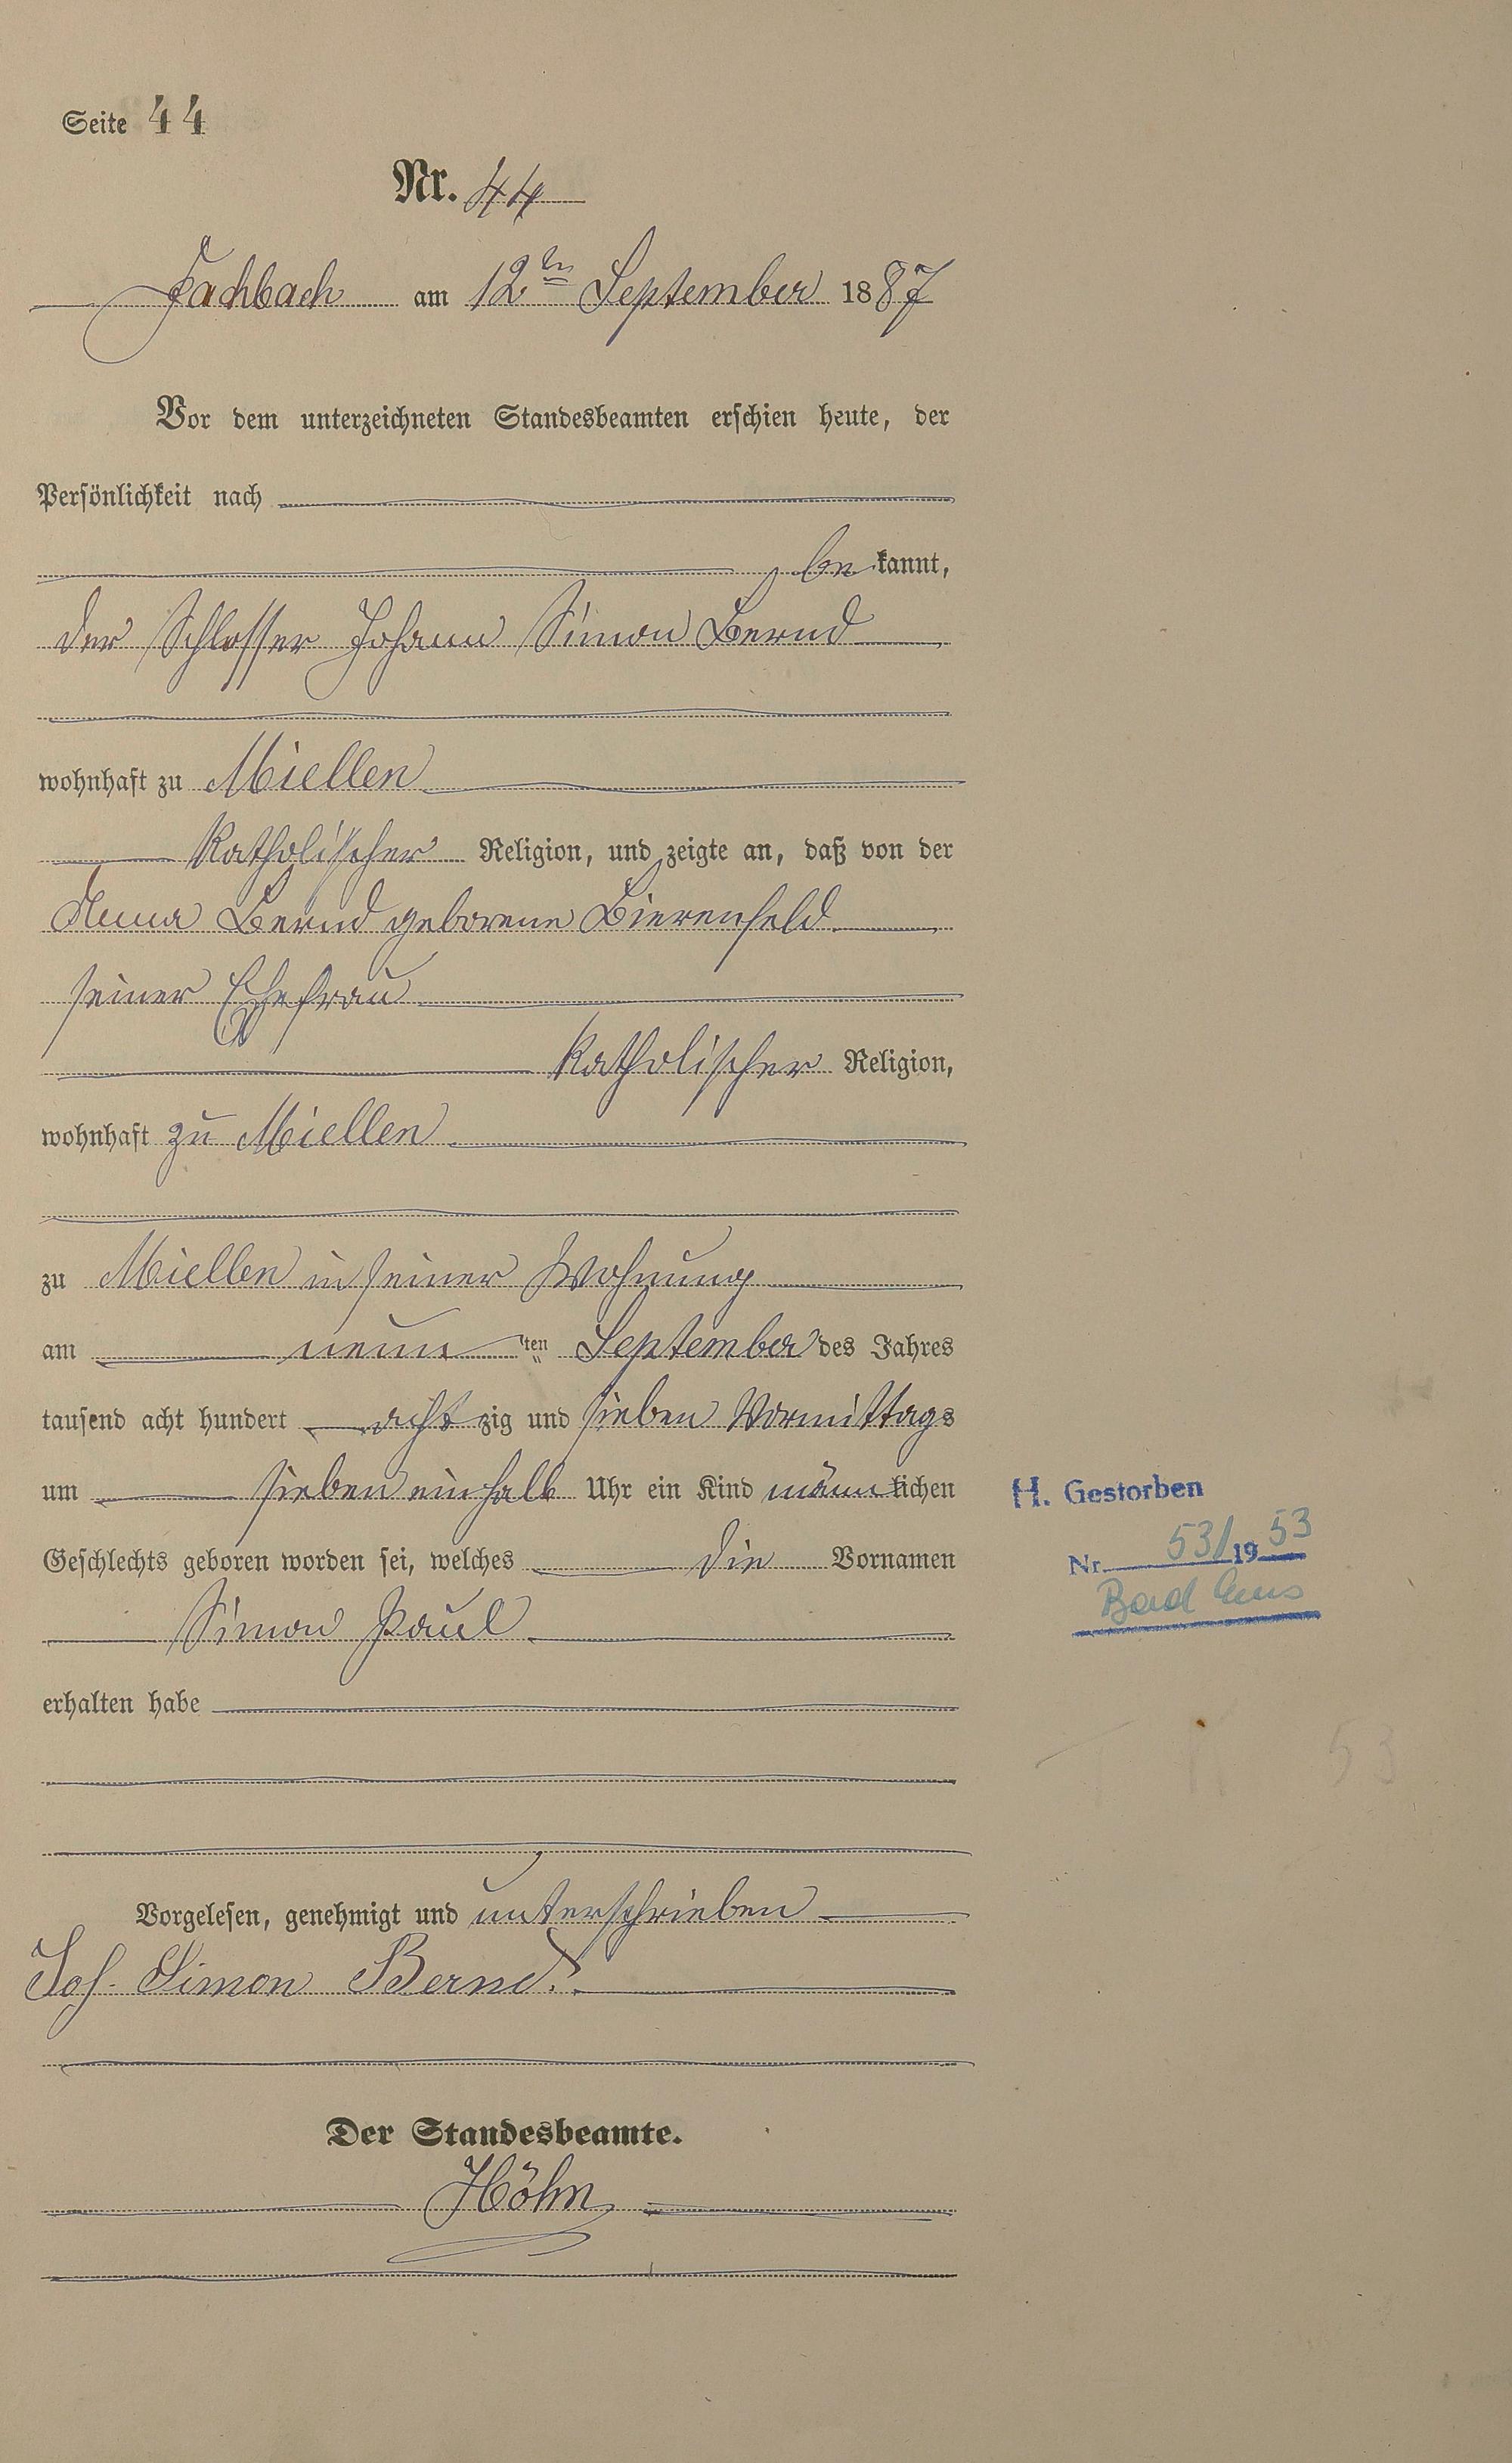 Seite 44
Nr. 44
Fachbach am 12ten September 1887
Vor dem unterzeichneten Standesbeamten erschien heute, der
Persönlichkeit nach
be kannt,
der Schlosser Johann Simon Bernd
wohnhaft zu Miellen
katholischer Religion, und zeigte an, daß von der
Anna Bernd geborene Bierenfeld
seiner Ehefrau
katholischer Religion,
wohnhaft zu Miellen
zu Miellen in seiner Wohnung
am neun ten September des Jahres
tausend acht hundert acht zig und sieben Vormittags
um sieben einhalb Uhr ein Kind männlichen
Geschlechts geboren worden sei, welches die Vornamen
Simon Paul
erhalten habe
Vorgelesen, genehmigt und unterschrieben
Joh. Simon Bernd.
Der Standesbeamte.
Höhn
H. Gestorben
Nr. 53/1953
Bad Ems
53